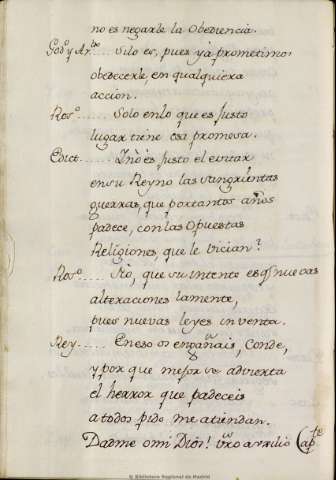 no es negarle la Obediencia.
God.º y Ar.do ..... Silo es, pues ya prometimos
obedecerle, en qualquiera
accion.
Ros.º ...... Solo enlo que es justo
lugar tiene esa promesa.
Edict. ..... Yno es justo el evitar
en su Reyno las sangrientas
guerras, que por tantos años
padece, con las Opuestas
Religiones, que le vician?
Ros.º .... No, que su intento es q.e nuevas
alteraciones lamente,
pues nuevas leyes inventa.
Rey ..... En eso os engañais, Conde,
y por que mejor se advierta
el herror que padeceis
a todos pido me atiendan.
Dadme o mi Dios! vro auxilio (ap.te
© Biblioteca Regional de Madrid